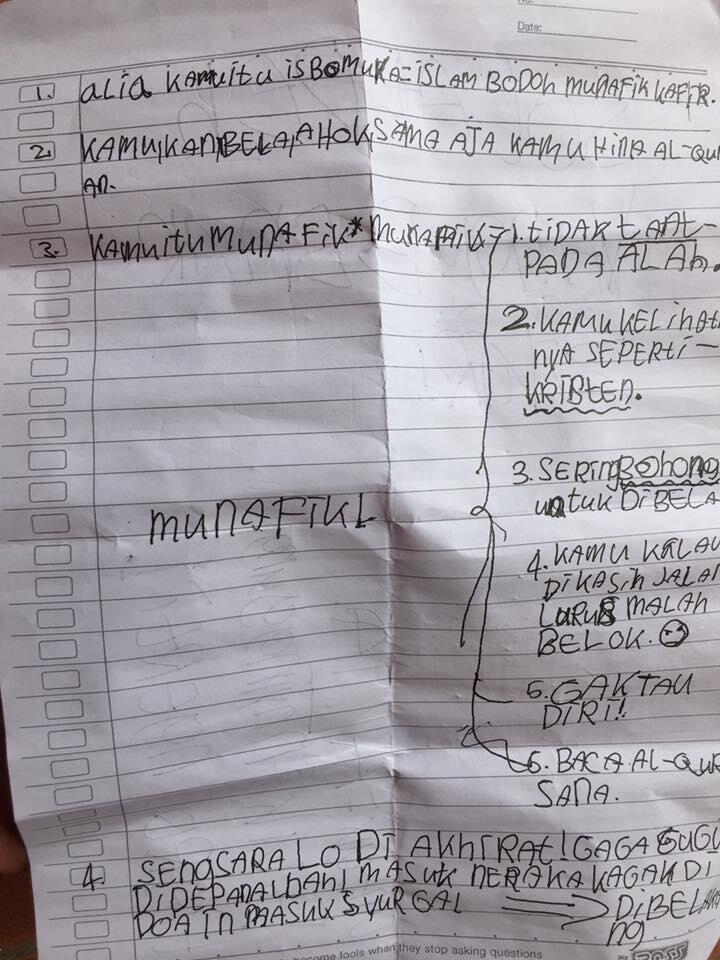 No:
Date:
1. aLia KamuitU isBOMUKA=iSLAM BODOH MUNAFIK KAFIR.
2. KAMU,KAN,BELA,AHOK,SAMA AJA KAMU HINA AL-QUR
AN.
3. KamuituMUNAFiK* MUNAFIK= 1. tiDAK tAAt-
PADA ALAh.
2. KAMU KELihat
nyA SEPERti-
KRIStEN.
3. SERingBohong
untuk DiBELA
4. KAMU KALAU
DiKASih JALAN
LURUS MALAH
BELOK.
munAFiKL
5. GAKTAU
DIRI!
6. BACA AL-QUR
SANA.
4. SENgSARA LO Di AKhiRAt! GAGA GUGU
DiDEPAN MASUK NERAKA KAGAK Di
DOAIN MASUK SYURGAL DiBELAKA
ng
come fools when they stop asking questions